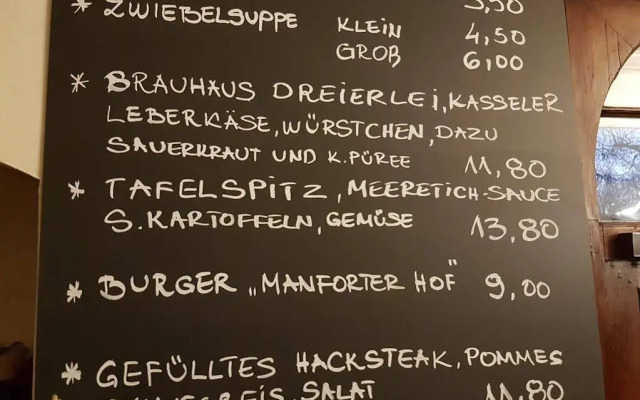 * ZWIEBELSUPPE KLEIN 4,50
GROß 6,00
* BRAUHAUS DREIERLEI, KASSELER
LEBERKÄSE, WÜRSTCHEN, DAZU
SAUERKRAUT UND K.PÜREE 11,80
* TAFELSPITZ, MEERETICH-SAUCE
S.KARTOFFELN, GEMÜSE 13,80
* BURGER „MANFORTER HOF" 9,00
* GEFÜLLTES HACKSTEAK, POMMES
SALAT 11,80